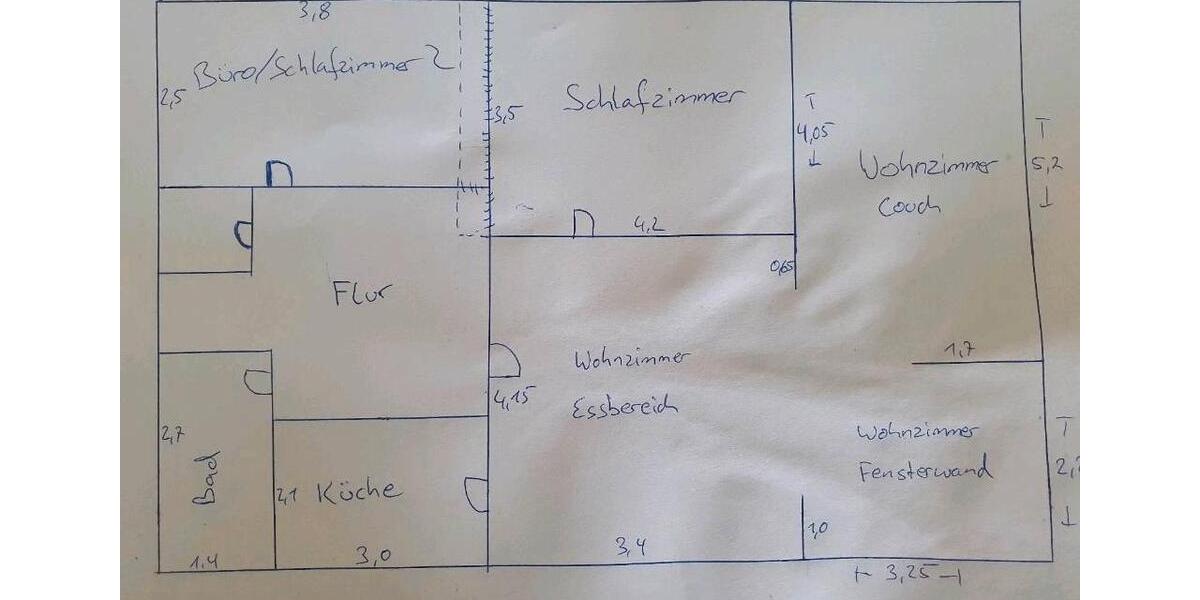 3,8
Büro/Schlafzimmer 2
2,5
3,5
Schlafzimmer
4,05
Wohnzimmer
Couch
5,2
4,2
0,65
Flur
1,7
Wohnzimmer
Essbereich
4,15
2,7
Bad
2,1
Küche
Wohnzimmer
Fensterwand
1,0
1,4
3,0
3,4
3,25